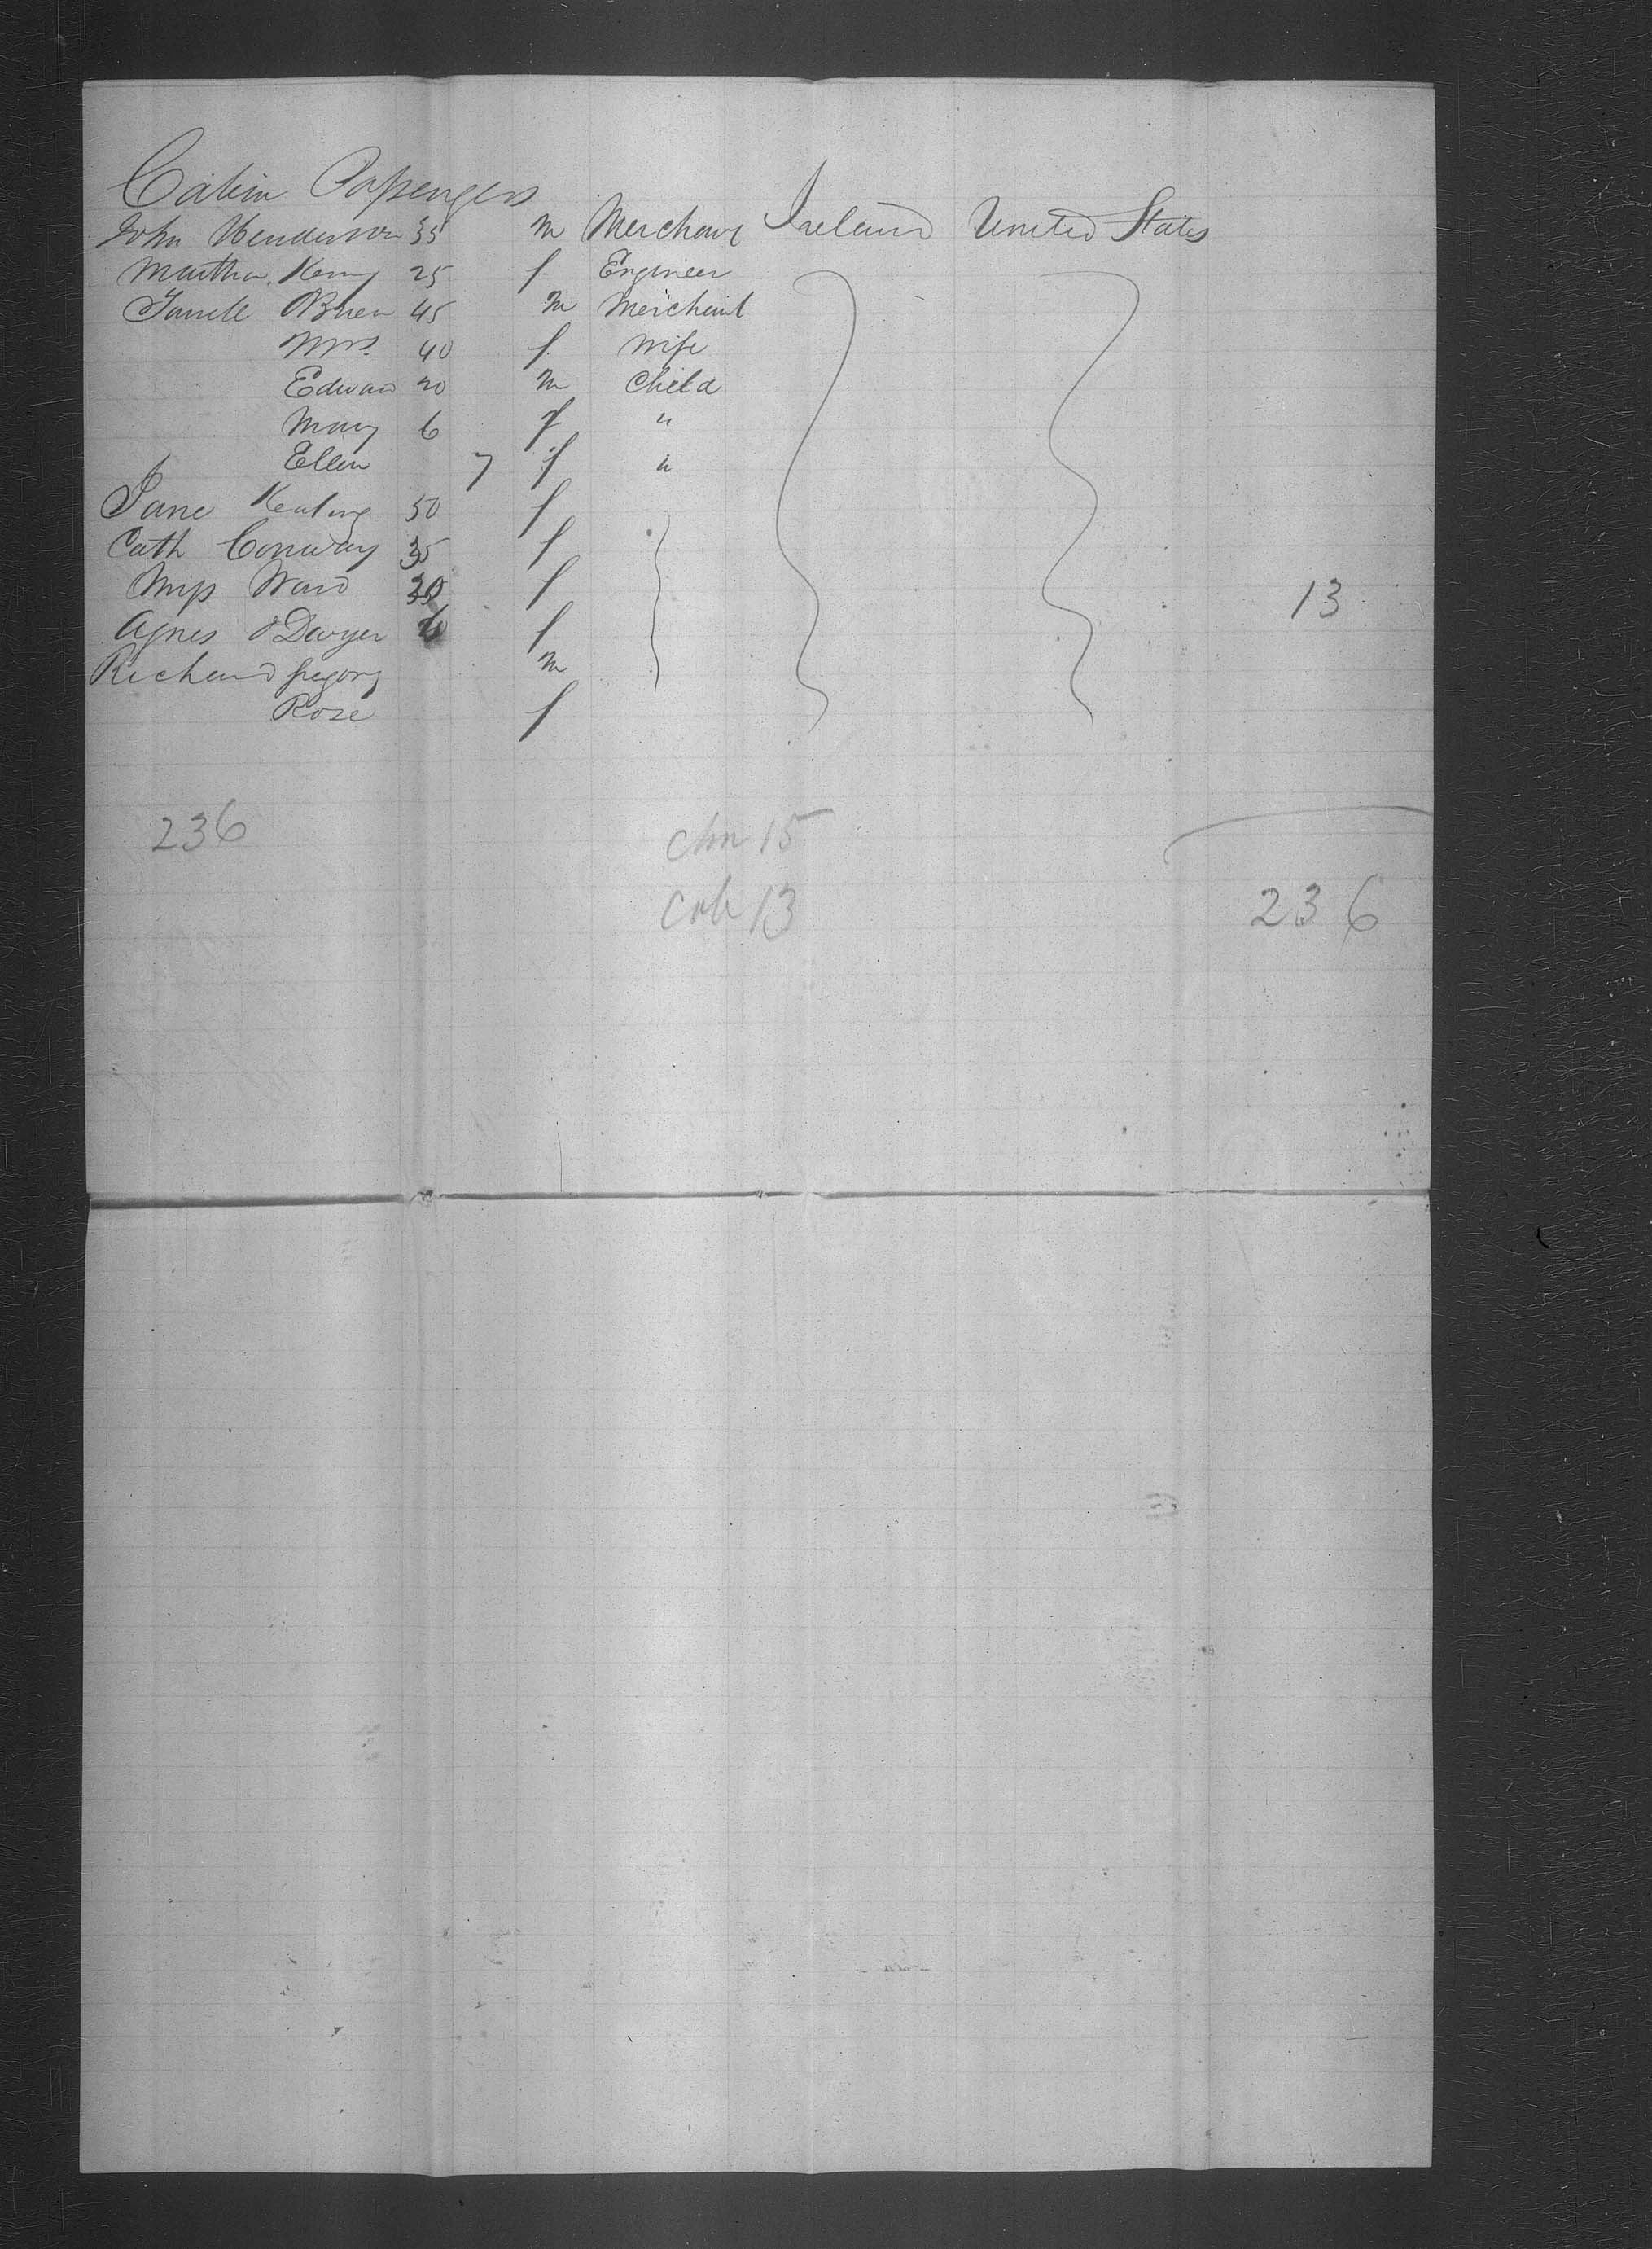 Cabin Passengers
John Henderson 35 m Merchant Ireland United States
Martha Kenny 25 f Engineer
O'Brien 45 m Merchant
Mrs. 40 f Wife
Edward 20 m Child
Mary 6 f "
Ellen 7 f "
Jane Keating 50 f
Cath Conway 35 f
Miss Ward 30 f 13
Agnes O'Dwyer f
Richard Gregory m
Rose f
236 chn 15
cab 13 236